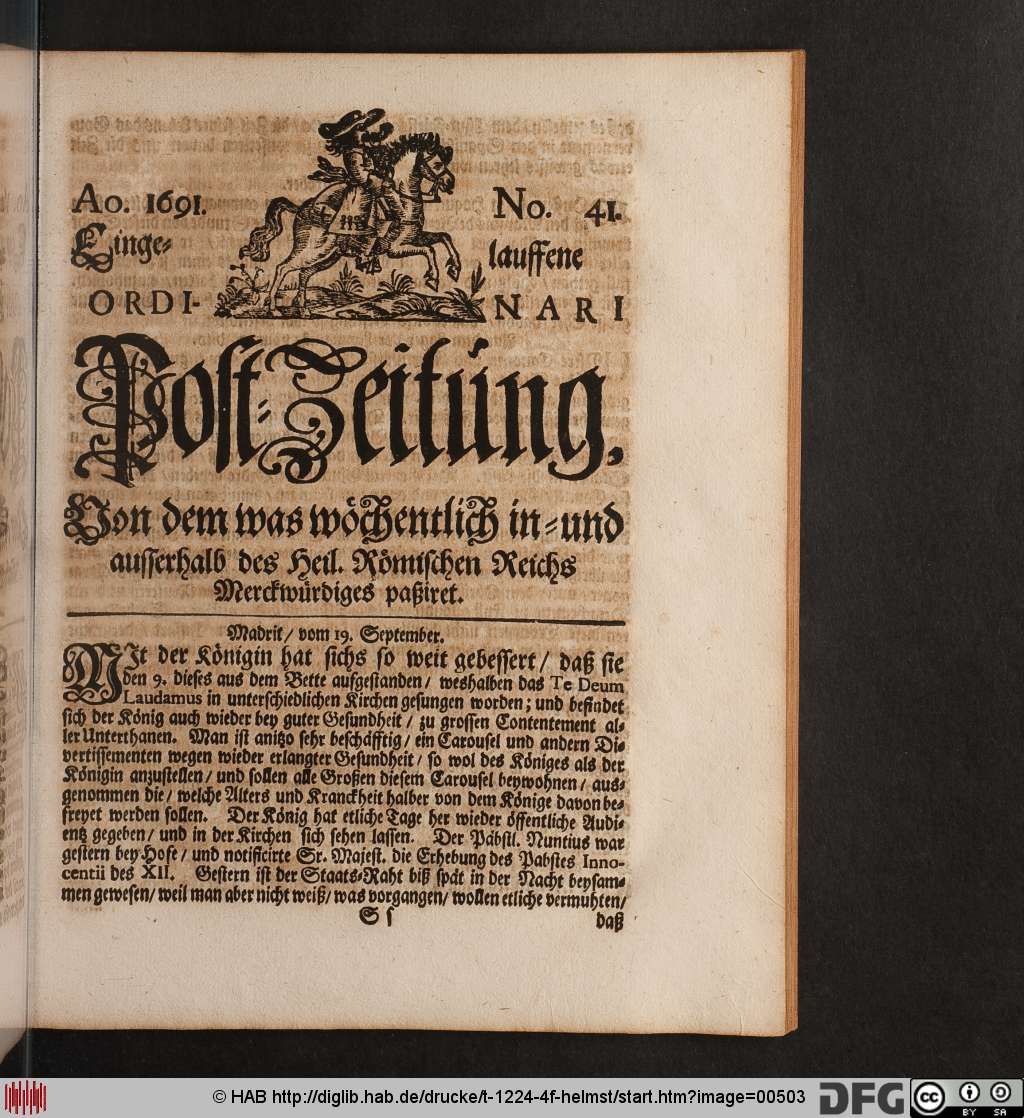 Ao. 1691. No. 41.
Einge- lauffene
ORDI- NARI
Post-Zeitung,
Von dem was wöchentlich in- und
ausserhalb des Heil. Römischen Reichs
Merckwürdiges paßiret.
Madrit/ vom 19. September.
MIt der Königin hat sichs so weit gebessert/ daß sie
den 9. dieses aus dem Bette aufgestanden/ weshalben das Te Deum
Laudamus in unterschiedlichen Kirchen gesungen worden; und befindet
sich der König auch wieder bey guter Gesundheit/ zu grossen Contentement al-
ler Unterthanen. Man ist anitzo sehr beschäfftig/ ein Carousel und andern Di-
vertissementen wegen wieder erlangter Gesundheit/ so wol des Königes als der
Königin anzustellen/ und sollen alle Großen diesem Carousel beywohnen/ aus-
genommen die/ welche Alters und Kranckheit halber von dem Könige davon be-
freyet werden sollen. Der König hat etliche Tage her wieder öffentliche Audi-
entz gegeben/ und in der Kirchen sich sehen lassen. Der Päbstl. Nuntius war
gestern bey Hofe/ und notificirte Sr. Majest. die Erhebung des Pabstes Inno-
centii des XII. Gestern ist der Staats-Raht biß spät in der Nacht beysam-
men gewesen/ weil man aber nicht weiß/ was vorgangen/ wollen etliche vermuhten/
S s daß
© HAB http://diglib.hab.de/drucke/t-1224-4f-helmst/start.htm?image=00503 DFG cc BY SA